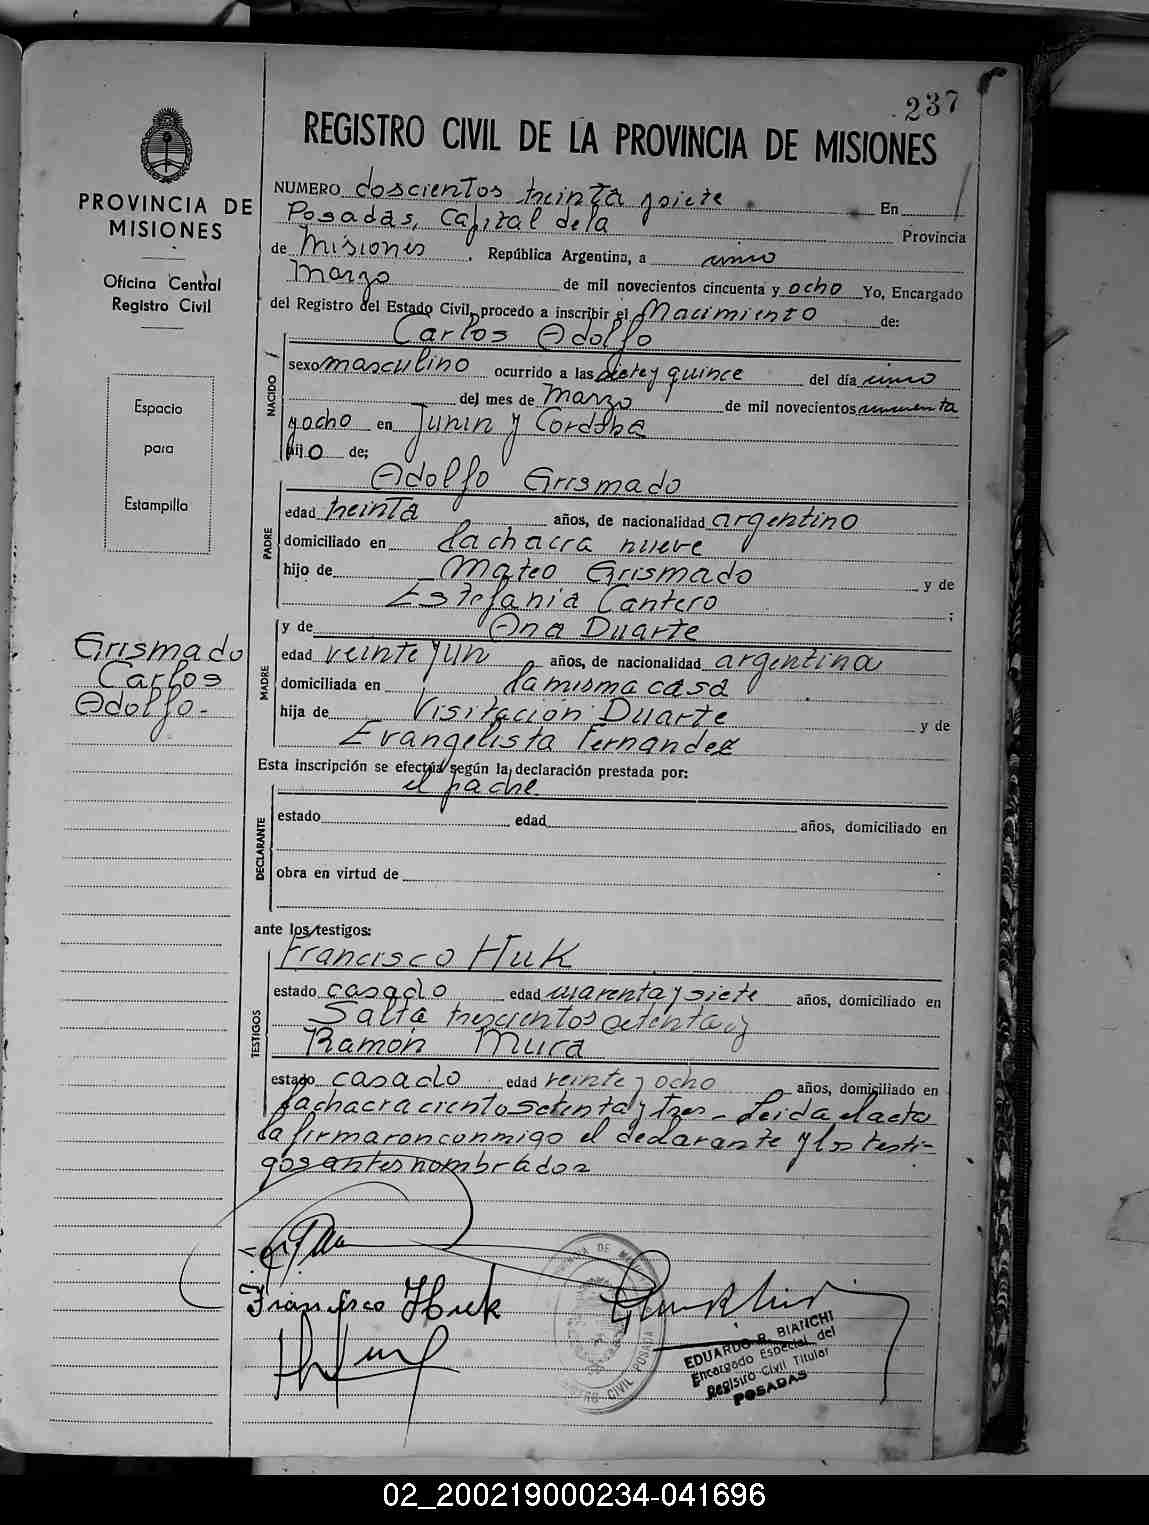 237
REGISTRO CIVIL DE LA PROVINCIA DE MISIONES
PROVINCIA DE
MISIONES
Oficina Central
Registro Civil
Espacio
para
Estampilla
Grismado
Carlos
Adolfo-
NUMERO doscientos treinta y siete En
Posadas, Capital de la Provincia
de Misiones, República Argentina, a cinco
Marzo de mil novecientos cincuenta y ocho Yo, Encargado
del Registro del Estado Civil, procedo a inscribir el Nacimiento de:
Carlos Adolfo
NACIDO
sexo masculino ocurrido a las siete y quince del día cinco
del mes de Marzo de mil novecientos cincuenta
y ocho en Junin y Cordoba
hijo de;
Adolfo Grismado
PADRE
edad treinta años, de nacionalidad argentino
domiciliado en la chacra nueve
hijo de Mateo Grismado y de
Estefania Cantero ;
y de Ana Duarte
MADRE
edad veinte y un años, de nacionalidad argentina
domiciliada en la misma casa
hija de Visitación Duarte y de
Evangelista Fernandez
Esta inscripción se efectúa según la declaración prestada por:
el padre
DECLARANTE
estado edad años, domiciliado en
obra en virtud de
ante los testigos:
Francisco Huk
TESTIGOS
estado casado edad cuarenta y siete años, domiciliado en
Salta trescientos setenta y
Ramón Mura
estado casado edad veinte y ocho años, domiciliado en
la chacra ciento setenta y tres - Leida el acta
la firmaron conmigo el declarante y los testi-
gos antes nombrados
Francisco Huk
REGISTRO CIVIL POSADAS
EDUARDO R. BIANCHI
Encargado Especial del
Registro Civil Titular
POSADAS
02_200219000234-041696